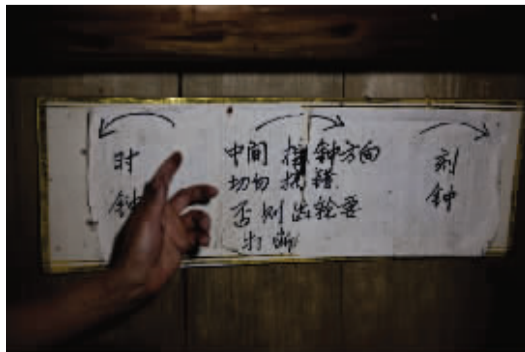 时
钟
中间 钟方向
切勿 错
否则齿轮要
打断
刻
钟